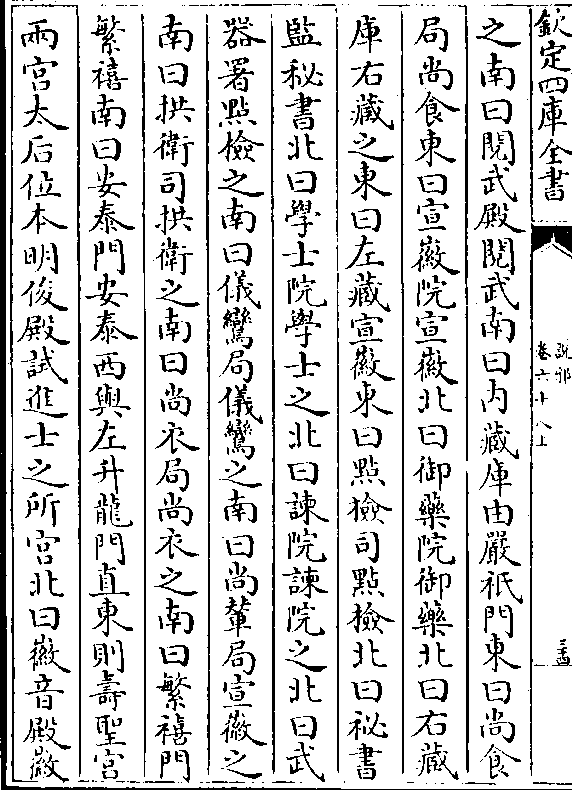 欽定四庫全書
說郛
卷六十八上
之南曰閱武殿閱武南曰内藏庫由嚴祇門東曰尚食
局尚食東曰宣徽院宣徽北曰御藥院御藥北曰右藏
庫右藏之東曰左藏宣徽東曰點檢司點檢北曰祕書
監秘書北曰學士院學士之北曰諫院諫院之北曰武
器署點檢之南曰儀鸞局儀鸞之南曰尚輦局宣徽之
南曰拱衛司拱衛之南曰尚衣局尚衣之南曰繁禧門
繁禧南曰安泰門安泰西與左升龍門直東則壽聖宮
兩宮太后位本明俊殿試進士之所宮北曰徽音殿徽